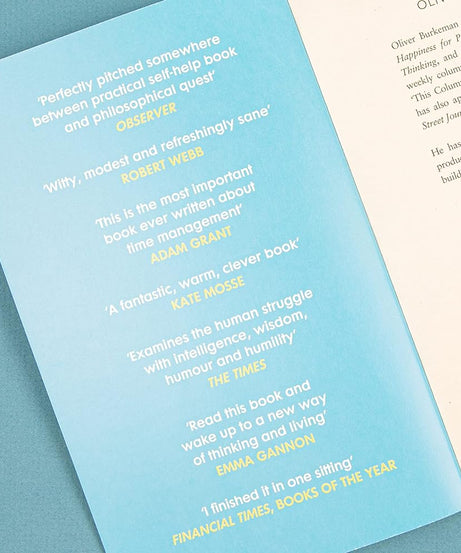 'Perfectly pitched somewhere
between practical self-help book
and philosophical quest'
OBSERVER
'Witty, modest and refreshingly sane'
ROBERT WEBB
'This is the most important
book ever written about
time management'
ADAM GRANT
'A fantastic, warm, clever book'
KATE MOSSE
'Examines the human struggle
with intelligence, wisdom,
humour and humility'
THE TIMES
'Read this book and
wake up to a new way
of thinking and living'
EMMA GANNON
'I finished it in one sitting'
FINANCIAL TIMES, BOOKS OF THE YEAR
Oliver Burkeman
Happiness for
Thinking, and
weekly
'This Column
has also
Street
He has